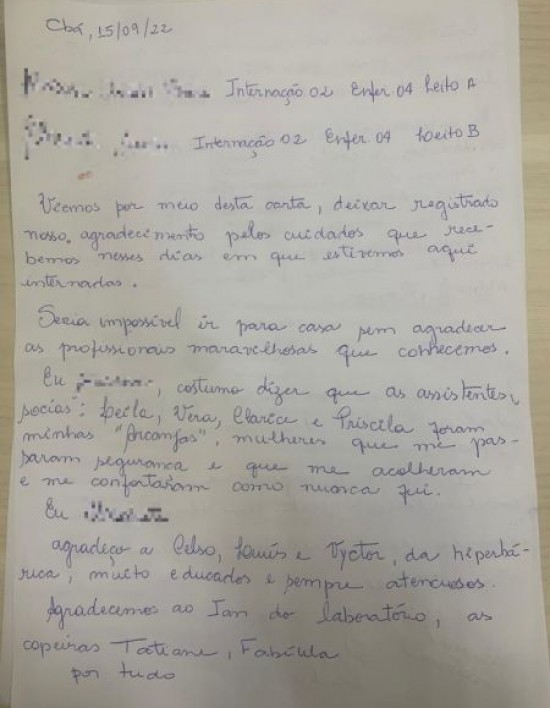 Cbá, 15/09/22
Internação 02 Enfer. 04 Leito A
Internação 02 Enfer. 04 Leito B
Viemos por meio desta carta, deixar registrado
nosso agradecimento pelos cuidados que rece-
bemos nesses dias em que estivemos aqui
internadas.
Seria impossível ir para casa sem agradecer
as profissionais maravilhosas que conhecemos.
Eu , costumo dizer que as assistentes
socias: Leila, Vera, Clarice e Priscila foram
minhas "Arcanjas", mulheres que me pas-
saram segurança e que me acolheram
e me confortaram como nunca fui.
Eu
agradeço a Celso, Louis e Vyctor, da hiperbá-
rica, muito educados e sempre atenciosos.
Agradecemos ao Ian do laboratório, as
copeiras Tatiane, Fabíula
por tudo